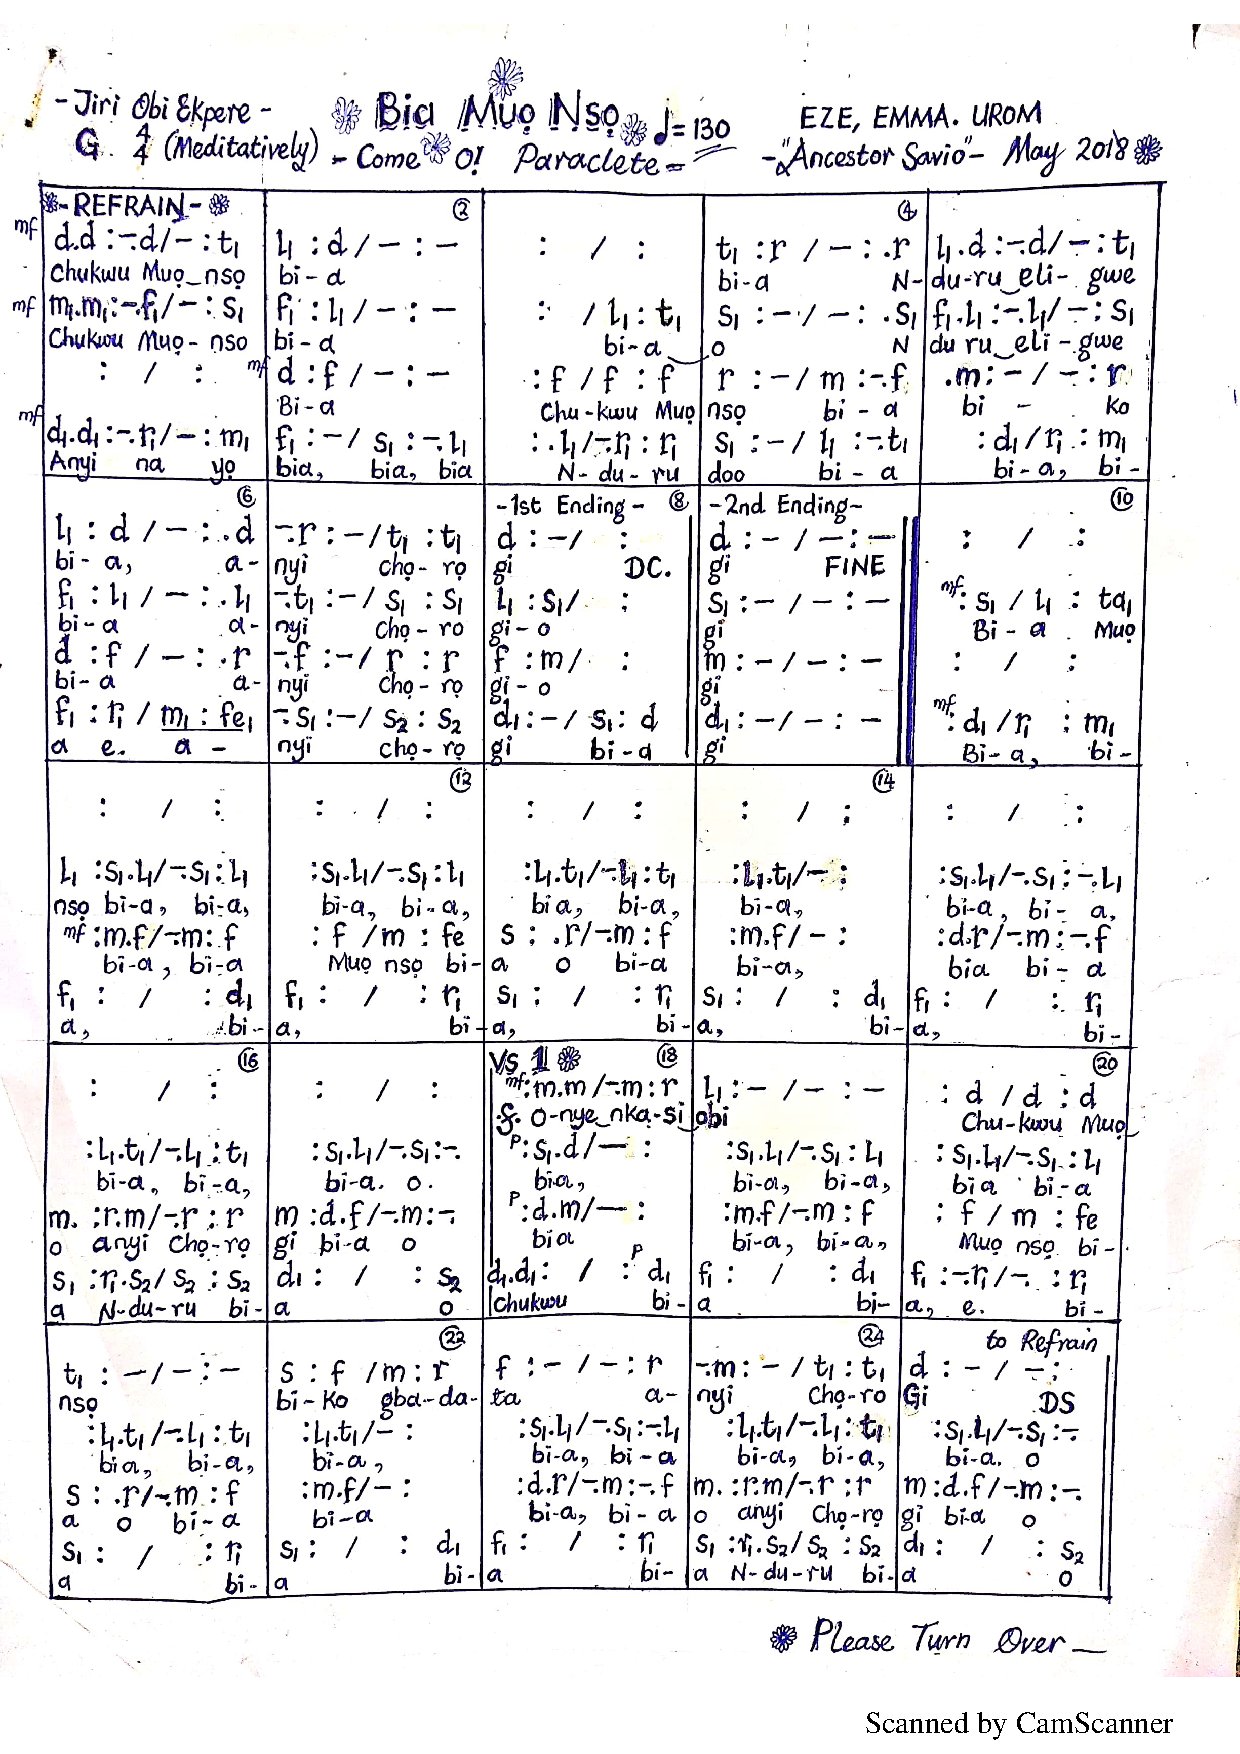 - Jiri Obi Ekpere -
Bịa Mụọ Nsọ ♩= 130
EZE, EMMA. UROM
G. 4/4 (Meditatively)
- Come O! Paraclete -
- "Ancestor Savio" - May 2018
- REFRAIN - ②  ④
mf d.d :-.d/– : t₁ | l₁ : d / – : – | : / : | t₁ : r / – : .r | l₁.d :-.d/– : t₁
Chukwu Mụọ_nsọ | bi-a | | bi-a N- | du-ru_eli-gwe
mf m₁.m₁:-.f₁/– : s₁ | f₁ : l₁ / – : – | : / l₁ : t₁ | s₁ : – / – : .s₁ | f₁.l₁ :-.l₁/– : s₁
Chukwu Mụọ-nso | bi-a | bi-a_ | o N | du ru_eli-gwe
: / : | mf d : f / – : – | : f / f : f | r : – / m :-.f | .m : – / – : r
| Bi-a | Chu-kwu Mụọ | nsọ bi-a | bi - ko
mf d₁.d₁ :-.r₁/– : m₁ | f₁ : – / s₁ :-.l₁ | : .l₁/-.r₁ : r₁ | s₁ : – / l₁ :-.t₁ | : d₁/r₁ : m₁
Anyi na yọ | bia, bia, bia | N-du-ru | doo bi-a | bi-a, bi-
⑥ | | -1st Ending- ⑧ | -2nd Ending- | ⑩
l₁ : d / – : .d | -.r : – / t₁ : t₁ | d : – / : | d : – / – : – | : / :
bi-a, a- | nyi chọ-rọ | gi DC. | gi FINE |
f₁ : l₁ / – : .l₁ | -.t₁ : – / s₁ : s₁ | l₁ : s₁/ : | s₁ : – / – : – | mf : s₁ / l₁ : ta₁
bi-a a- | nyi chọ-ro | gi-o | gi | Bi-a Mụọ
d : f / – : .r | -.f : – / r : r | f : m / : | m : – / – : – | : / :
bi-a a- | nyi chọ-rọ | gi-o | gi |
f₁ : r₁ / m₁ : fe₁ | -.s₁ : – / s₂ : s₂ | d₁ : – / s₁ : d | d₁ : – / – : – | mf : d₁/r₁ : m₁
a e. a- | nyi chọ-rọ | gi bi-a | gi | Bi-a, bi-
⑫ ⑭
: / : | : / : | : / : | : / : | : / :
l₁ :s₁.l₁/-.s₁ : l₁ | :s₁.l₁/-.s₁ : l₁ | :l₁.t₁/-.l₁ : t₁ | :l₁.t₁/– : | :s₁.l₁/-.s₁ :-.l₁
nsọ bi-a, bi-a, | bi-a, bi-a, | bia, bi-a, | bi-a, | bi-a, bi-a,
mf :m.f/-.m : f | : f / m : fe | s : .r/-.m : f | :m.f/ – : | :d.r/-.m :-.f
bi-a, bi-a | Mụọ nsọ bi- | a o bi-a | bi-a, | bia bi-a
f₁ : / : d₁ | f₁ : / : r₁ | s₁ : / : r₁ | s₁ : / : d₁ | f₁ : / : r₁
a, bi- | a, bi- | a, bi- | a, bi- | a, bi-
⑯ | | VS 1 ⑱ | | ⑳
: / : | : / : | mf :m.m/-.m : r | l₁ : – / – : – | : d / d : d
| | O-nye_nka-si_ | obi | Chu-kwu Mụọ_
:l₁.t₁/-.l₁ : t₁ | :s₁.l₁/-.s₁ :-. | P :s₁.d/– : | :s₁.l₁/-.s₁ : l₁ | :s₁.l₁/-.s₁ : l₁
bi-a, bi-a, | bi-a. o. | bia, | bi-a, bi-a, | bia bi-a
m. :r.m/-.r : r | m :d.f/-.m :-. | P :d.m/– : | :m.f/-.m : f | : f / m : fe
o anyi chọ-rọ | gi bi-a o | bia | bi-a, bi-a, | Mụọ nsọ bi-
s₁ :r₁.s₂/ s₂ : s₂ | d₁ : / : s₂ | d₁.d₁ : / : P d₁ | f₁ : / : d₁ | f₁ :-.r₁/-. : r₁
a N-du-ru bi- | a o | chukwu bi- | a bi- | a, e. bi-
㉒ ㉔ to Refrain
t₁ : – / – : – | s : f / m : r | f : – / – : r | -.m : – / t₁ : t₁ | d : – / – :
nsọ | bi-ko gba-da- | ta a- | nyi chọ-ro | Gi DS
:l₁.t₁/-.l₁ : t₁ | :l₁.t₁/– : | :s₁.l₁/-.s₁ :-.l₁ | :l₁.t₁/-.l₁ : t₁ | :s₁.l₁/-.s₁ :-.
bia, bi-a, | bi-a, | bi-a, bi-a | bi-a, bi-a, | bi-a. o
s : .r/-.m : f | :m.f/– : | :d.r/-.m :-.f | m. :r.m/-.r : r | m :d.f/-.m :-.
a o bi-a | bi-a | bi-a, bi-a | o anyi chọ-rọ | gi bi-a o
s₁ : / : r₁ | s₁ : / : d₁ | f₁ : / : r₁ | s₁ :r₁.s₂/ s₂ : s₂ | d₁ : / : s₂
a bi- | a bi- | a bi- | a N-du-ru bi- | a o
Please Turn Over
Scanned by CamScanner